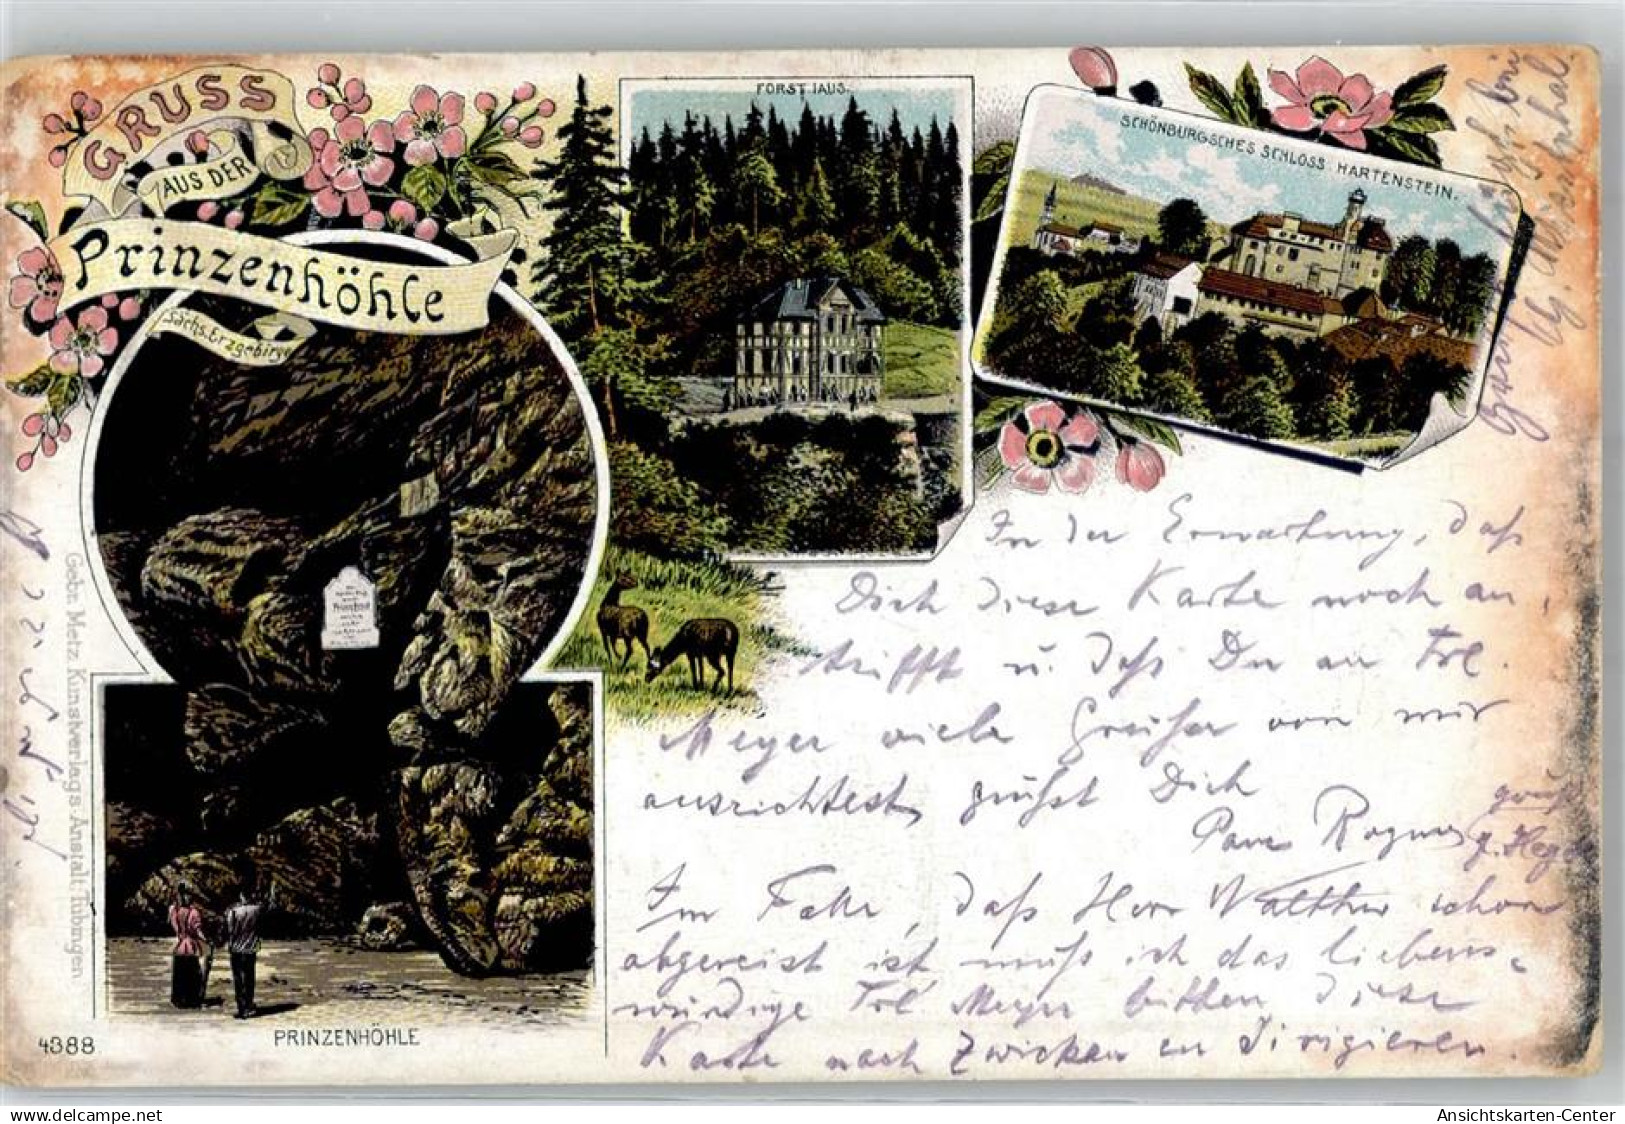 GRUSS
AUS DER
Prinzenhöhle
(Sächs. Erzgebirge)
FORSTHAUS.
SCHÖNBURGSCHES SCHLOSS HARTENSTEIN.
In der Erwartung, daß
Dich diese Karte noch an,
trifft u. daß Du an Frl.
Meyer viele Grüße von mir
ausrichtest, grüßt Dich
Im Falle, daß Herr Walther schon
abgereist ist muß ich das liebens-
würdige Frl. Meyer bitten diese
Karte nach Zwickau zu dirigieren.
Gebr. Metz, Kunstverlags-Anstalt, Tübingen
4388
PRINZENHÖHLE
delcampe.net
Ansichtskarten-Center